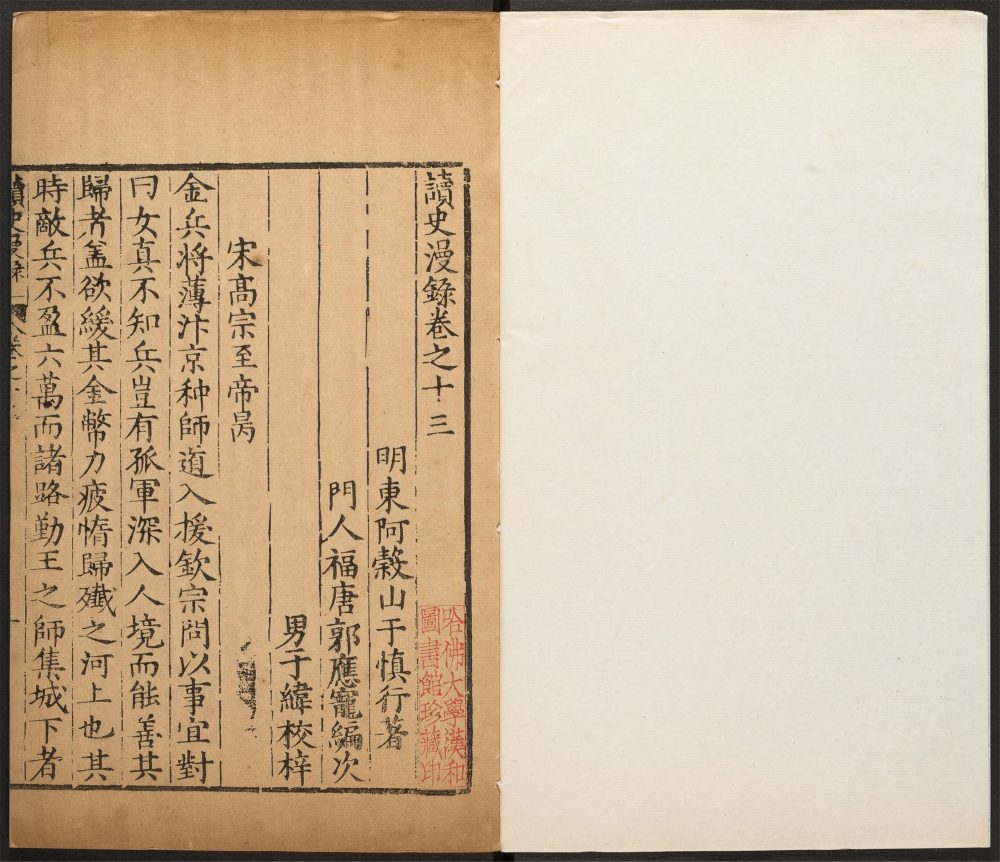 讀史漫錄卷之十三
明東阿穀山于慎行著
門人福唐郭應寵編次
男于緯校梓
宋高宗至帝昺
金兵將薄汴京种師道入援欽宗問以事宜對
曰女真不知兵豈有孤軍深入人境而能善其
歸者盖欲緩其金幣力疲惰歸殲之河上也其
時敵兵不盈六萬而諸路勤王之師集城下者
讀史漫錄 卷之十
哈佛大學漢和
圖書館珍藏印